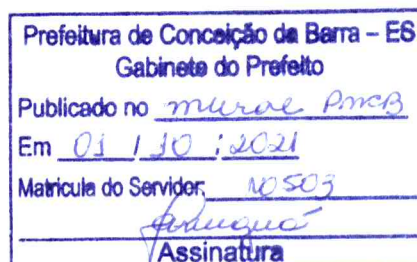 Prefeitura de Conceição da Barra – ES
Gabinete do Prefeito
Publicado no mural PMCB
Em 01 / 10 / 2021
Matricula do Servidor: 10503
Assinatura